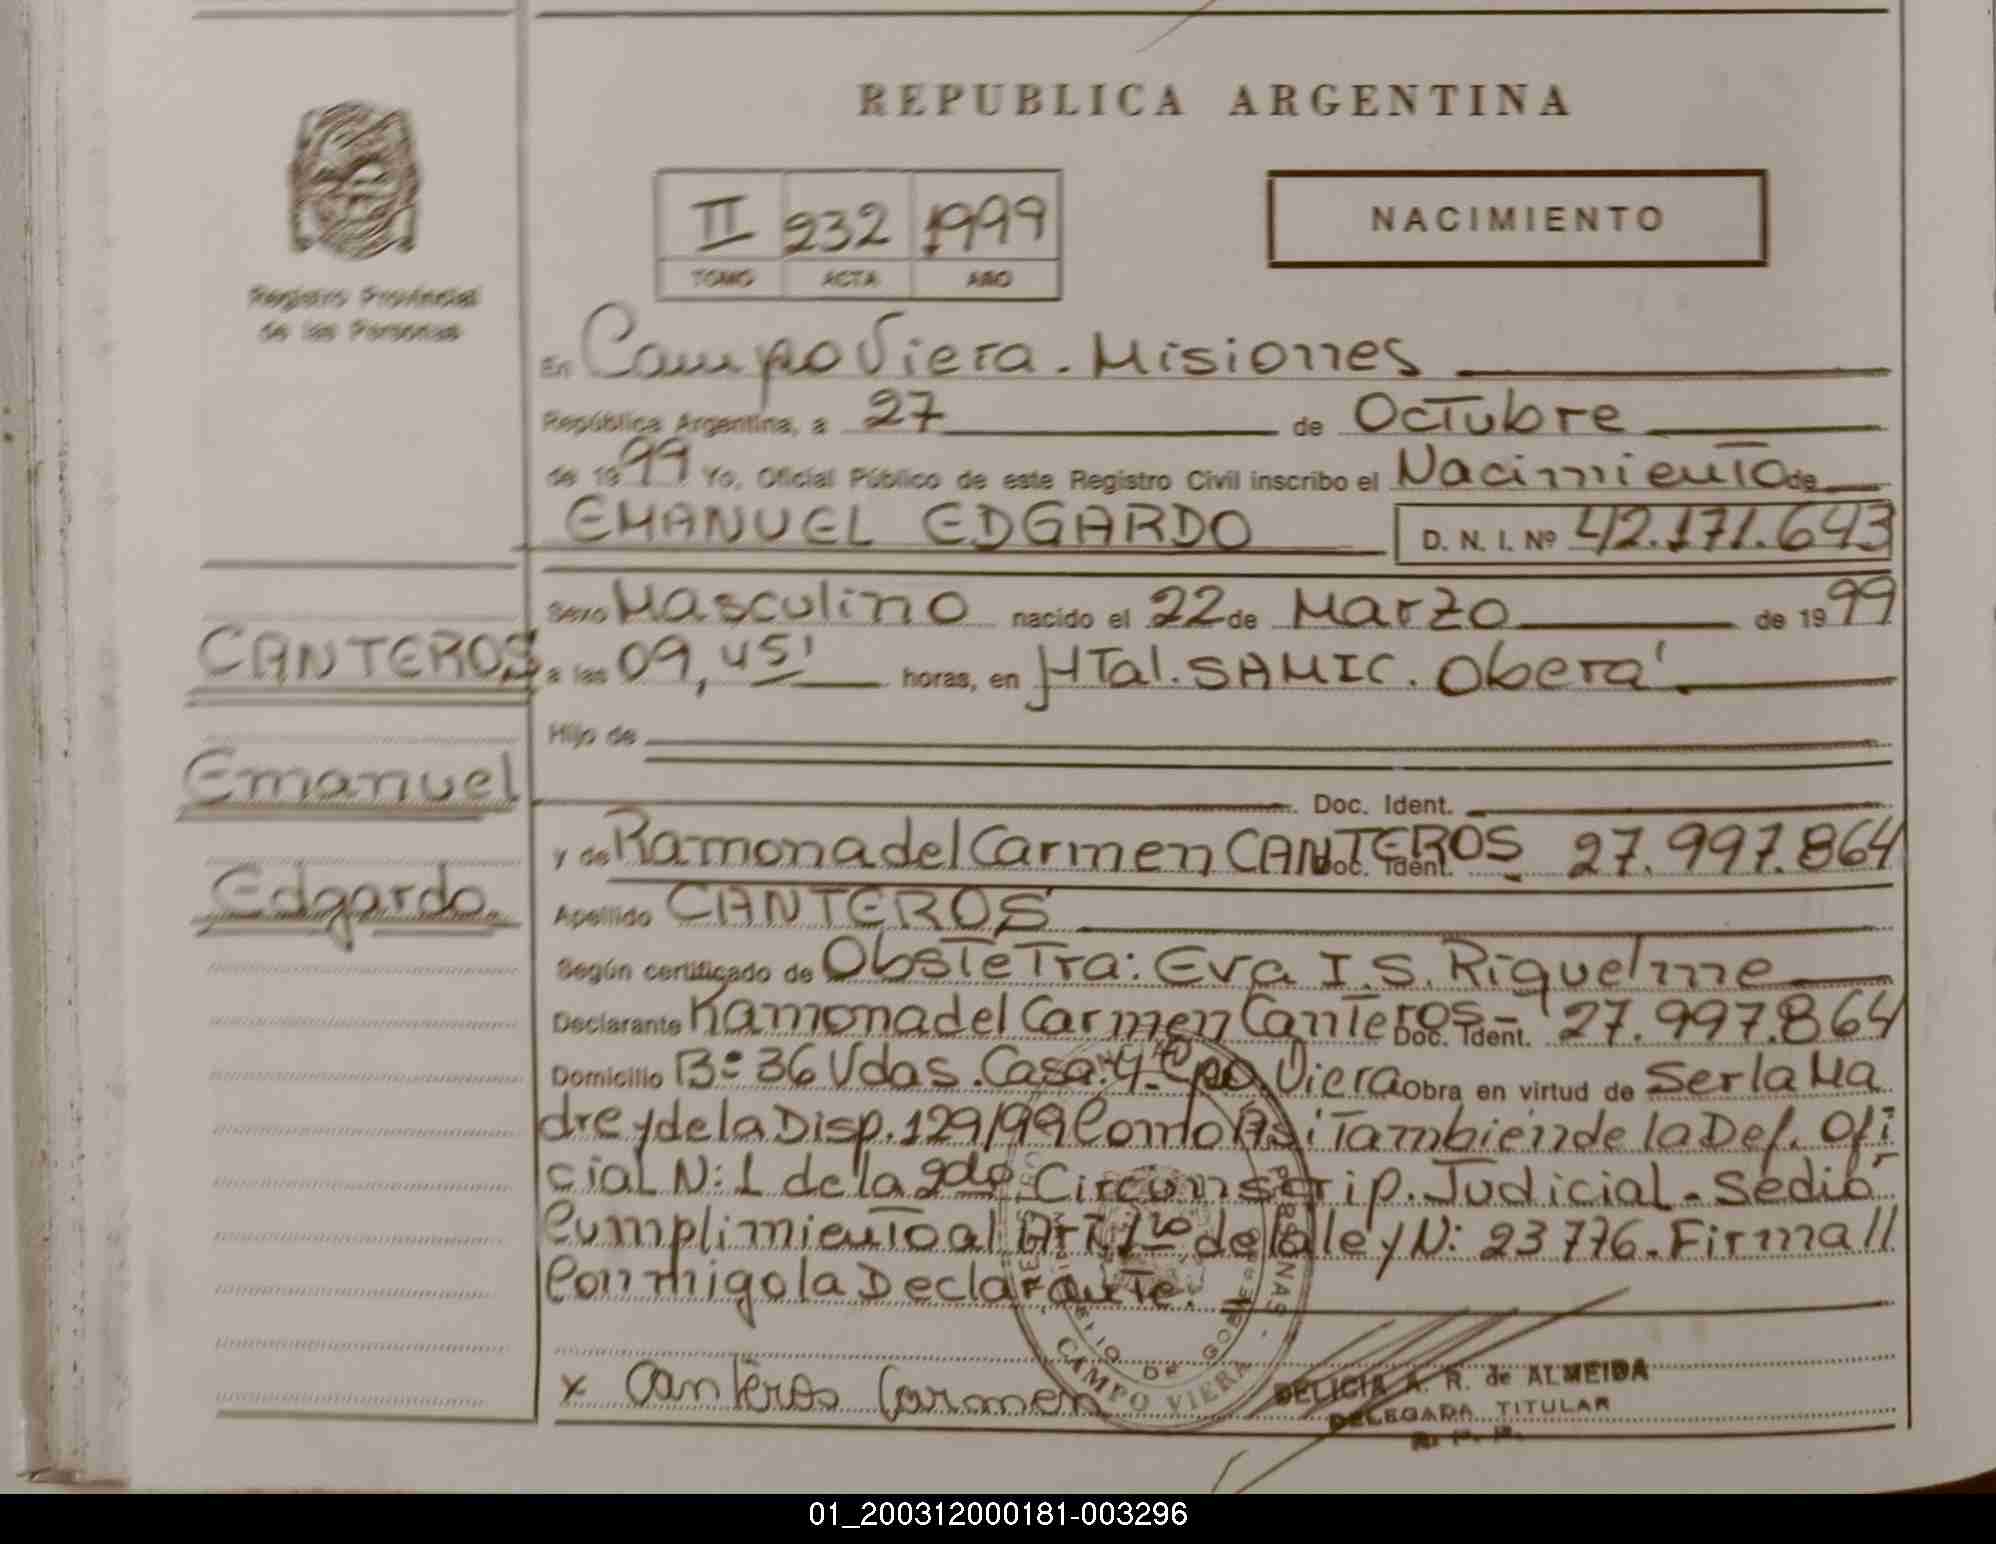 REPUBLICA ARGENTINA
II 232 1999
TOMO ACTA AÑO
NACIMIENTO
Registro Provincial
de las Personas
En Campo Viera. Misiones
República Argentina, a 27 de Octubre
de 1999 Yo, Oficial Público de este Registro Civil inscribo el Nacimiento de
EMANUEL EDGARDO D. N. I. Nº 42.171.643
Sexo Masculino nacido el 22 de Marzo de 1999
CANTEROS
a las 09,45' horas, en HTal. SAMIC. Oberá.
Hijo de
Emanuel
Doc. Ident.
y de Ramona del Carmen CANTEROS Doc. Ident. 27.997.864
Edgardo.
Apellido CANTEROS
Según certificado de Obstetra: Eva I.S. Riquelme
Declarante Ramona del Carmen Canteros- Doc. Ident. 27.997.864
Domicilio Bº 36 Vdas. Casa: 4- Cpo. Viera Obra en virtud de Ser la Ma
dre y de la Disp. 129/99 Como Asi Tambien de la Def. Ofi
cial N: 1 de la 2da Circunscrip. Judicial. Se dió
Cumplimiento al Art. 1ro de la ley N: 23776. Firma
Conmigo la Declarante.
x Canteros Carmen
CAMPO VIERA
DELICIA A. R. de ALMEIDA
DELEGADA TITULAR
R. P. P.
01_200312000181-003296